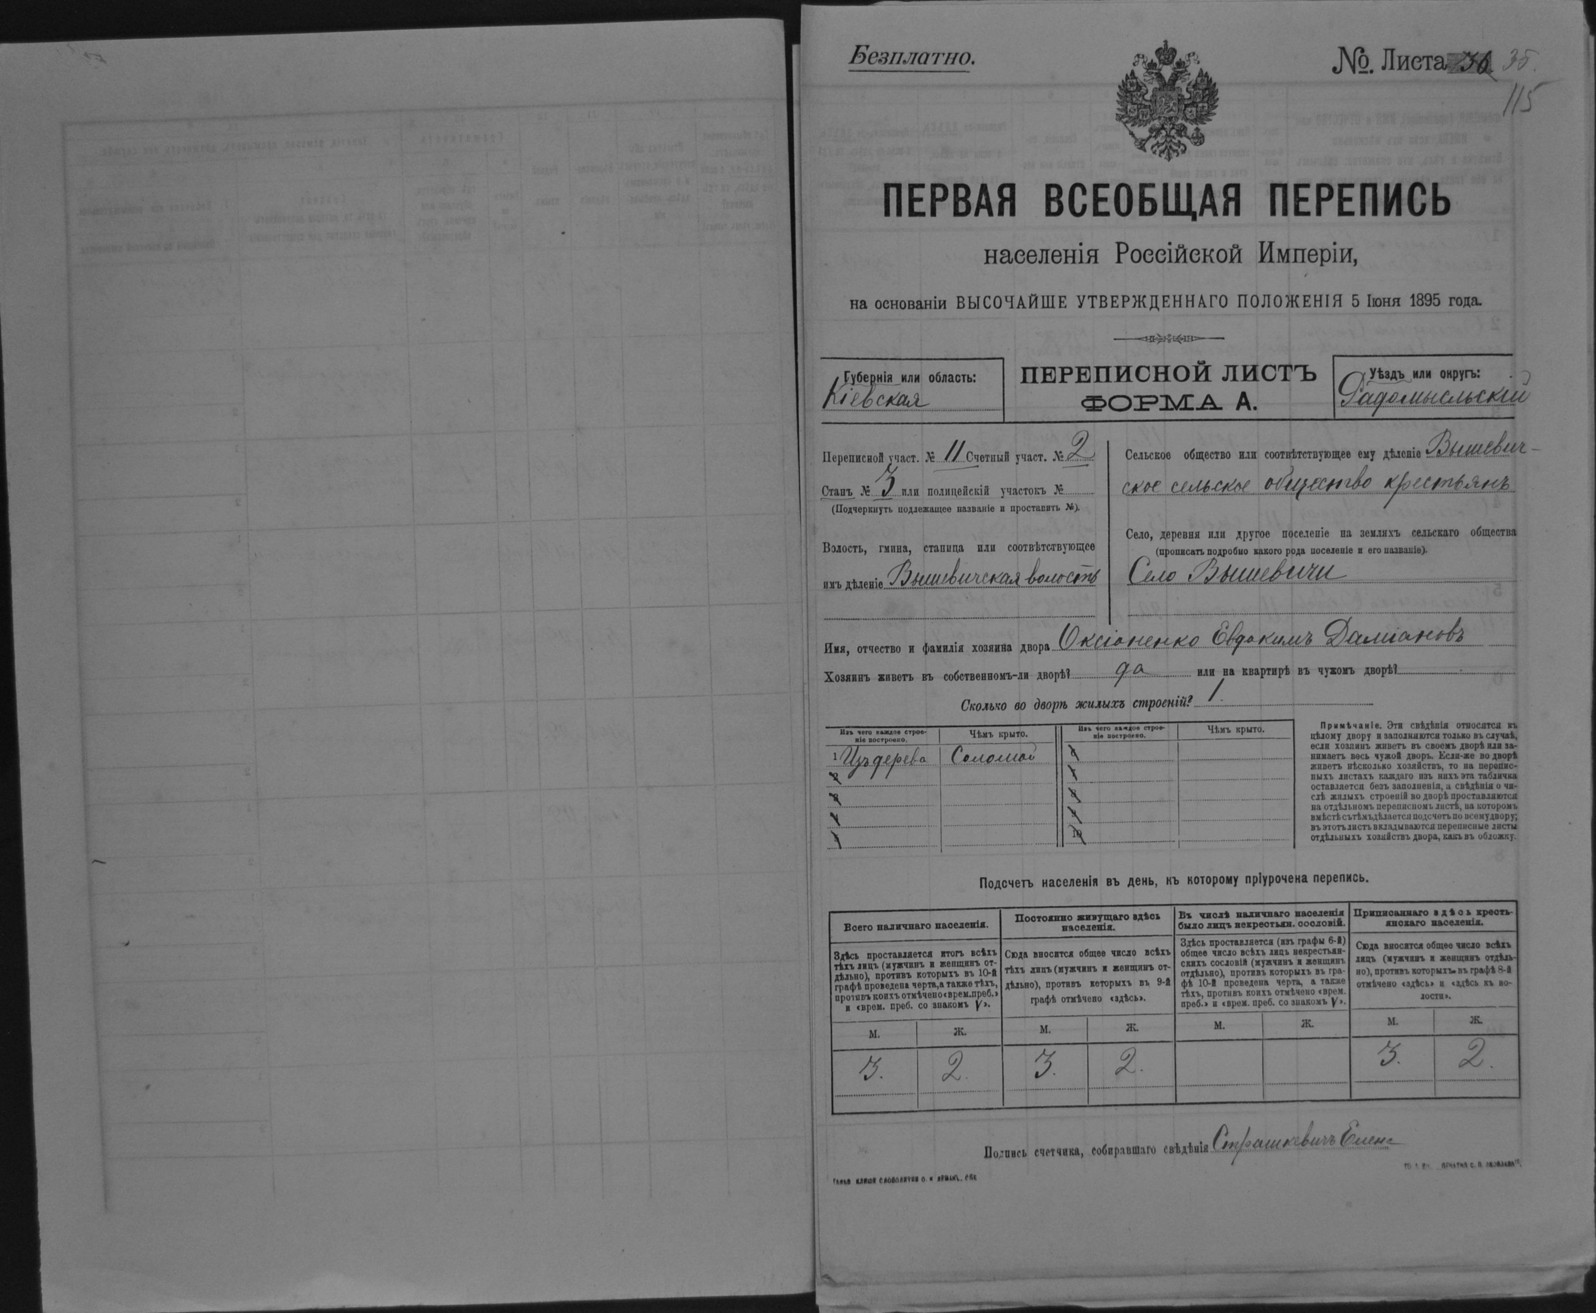 Безплатно.
№. Листа 36 35.
115
ПЕРВАЯ ВСЕОБЩАЯ ПЕРЕПИСЬ
населенія Россійской Имперіи,
на основаніи ВЫСОЧАЙШЕ УТВЕРЖДЕННАГО ПОЛОЖЕНІЯ 5 Іюня 1895 года.
Губернія или область:
Кіевская
ПЕРЕПИСНОЙ ЛИСТЪ
ФОРМА А.
Уѣздъ или округъ:
Радомысльскій
Переписной участ. № 11 Счетный участ. № 2
Станъ № 3 или полицейскій участокъ №
(Подчеркнуть подлежащее названіе и проставить №).
Волость, гмина, станица или соотвѣтствующее
имъ дѣленіе Вышевичская волость
Сельское общество или соотвѣтствующее ему дѣленіе Вышевич-
ское сельское общество крестьянъ
Село, деревня или другое поселеніе на земляхъ сельскаго общества
(прописать подробно какого рода поселеніе и его названіе).
Село Вышевичи
Имя, отчество и фамилія хозяина двора Оксіоненко Евдокимъ Даміановъ
Хозяинъ живетъ въ собственномъ-ли дворѣ? да или на квартирѣ въ чужомъ дворѣ?
Сколько во дворѣ жилыхъ строеній? 1.
Изъ чего каждое строе-
ніе построено.
Чѣмъ крыто.
Изъ чего каждое строе-
ніе построено.
Чѣмъ крыто.
1 Изъ дерева Соломой
2
3
4
5
10
Примѣчаніе. Эти свѣдѣнія относятся къ
цѣлому двору и заполняются только въ случаѣ,
если хозяинъ живетъ въ своемъ дворѣ или за-
нимаетъ весь чужой дворъ. Если-же во дворѣ
живетъ нѣсколько хозяйствъ, то на перепис-
ныхъ листахъ каждаго изъ нихъ эта табличка
оставляется безъ заполненія, а свѣдѣнія о чи-
слѣ жилыхъ строеній во дворѣ проставляются
на отдѣльномъ переписномъ листѣ, на которомъ
вмѣстѣ съ тѣмъ дѣлается подсчетъ по всему двору;
въ этотъ листъ вкладываются переписные листы
отдѣльныхъ хозяйствъ двора, какъ въ обложку.
Подсчетъ населенія въ день, къ которому пріурочена перепись.
Всего наличнаго населенія.
Здѣсь проставляется итогъ всѣхъ
тѣхъ лицъ (мужчинъ и женщинъ от-
дѣльно), противъ которыхъ въ 10-й
графѣ проведена черта, а также тѣхъ,
противъ коихъ отмѣчено «врем. преб.»
и «врем. преб. со знакомъ V».
Постоянно живущаго здѣсь
населенія.
Сюда вносится общее число всѣхъ
тѣхъ лицъ (мужчинъ и женщинъ от-
дѣльно), противъ которыхъ въ 9-й
графѣ отмѣчено «здѣсь».
Въ числѣ наличнаго населенія
было лицъ некрестьян. сословій.
Здѣсь проставляется (изъ графы 6-й)
общее число всѣхъ лицъ некрестьян-
скихъ сословій (мужчинъ и женщинъ
отдѣльно), противъ которыхъ въ гра-
фѣ 10-й проведена черта, а также
тѣхъ, противъ коихъ отмѣчено «врем.
преб.» и «врем. преб. со знакомъ V».
Приписаннаго здѣсь кресть-
янскаго населенія.
Сюда вносится общее число всѣхъ
лицъ (мужчинъ и женщинъ отдѣль-
но), противъ которыхъ въ графѣ 8-й
отмѣчено «здѣсь» и «здѣсь въ во-
лости».
М. Ж. М. Ж. М. Ж. М. Ж.
3. 2 3. 2. 3. 2.
Подпись счетчика, собиравшаго свѣдѣнія Страшкевичъ